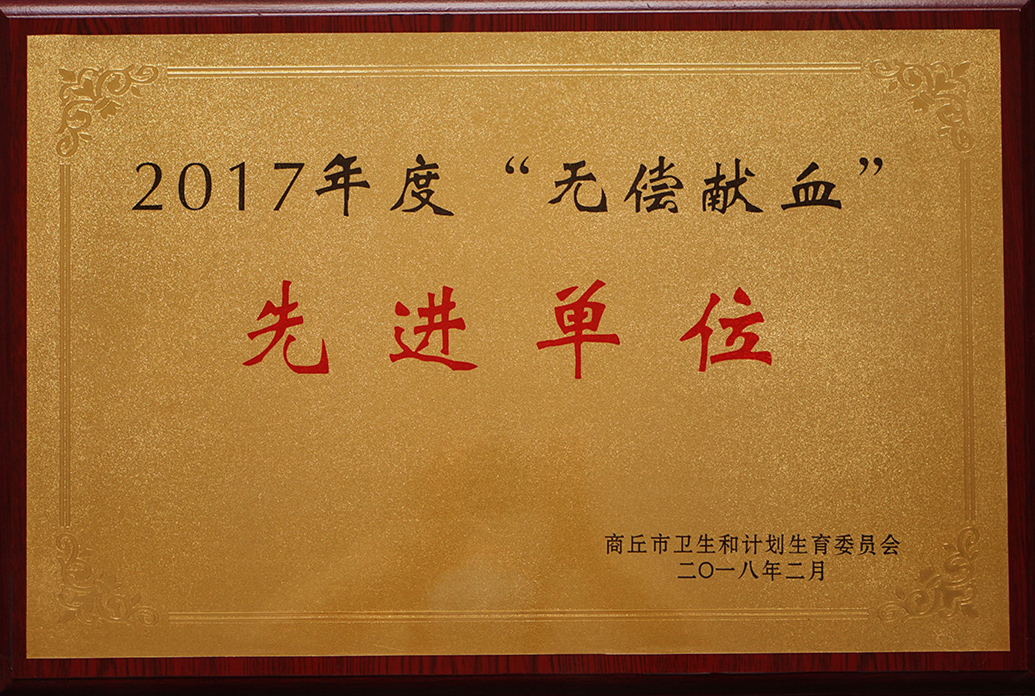 2017年度“无偿献血”
先进单位
商丘市卫生和计划生育委员会
二〇一八年二月